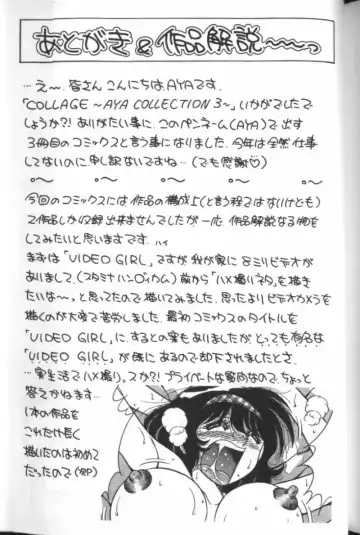 あとがき&作品解説〜〜〜っ
…え〜. 皆さんこんにちは、AYAです.
「COLLAGE 〜AYA COLLECTION 3〜」いかがでしたで
しょうか?! ありがたい事に このペンネーム(AYA)で出す
3冊目のコミックスと言う事になりました. 今年は全然仕事
してないのに申し訳ないですね…(でも感謝♡)
今回のコミックスには作品の構成上(と言う程ではないけども)
で作品しか収録出来ませんでしたが一応. 作品解説なる物を
してみたいと思いますです. ハイ
まずは「VIDEO GIRL」ですが 我が家に 8ミリビデオが
ありまして.(スタミナハンディカム) 前から「ハメ撮りネタ」を描き
たいな〜. と思ってたので描いてみました. 思ったよりビデオカメラを
描くのが大変で苦労しました. 最初コミックスのタイトルを
「VIDEO GIRL」に. するとの案もありましたが とっても有名な
「VIDEO GIRL」が既にあるので却下されましたとさ.
…実生活でハメ撮り. スか?! プライベートな質問なので. ちょっと
答えかねます…
1本の作品を
これだけ長く
描いたのは初めて
だったので(RP)